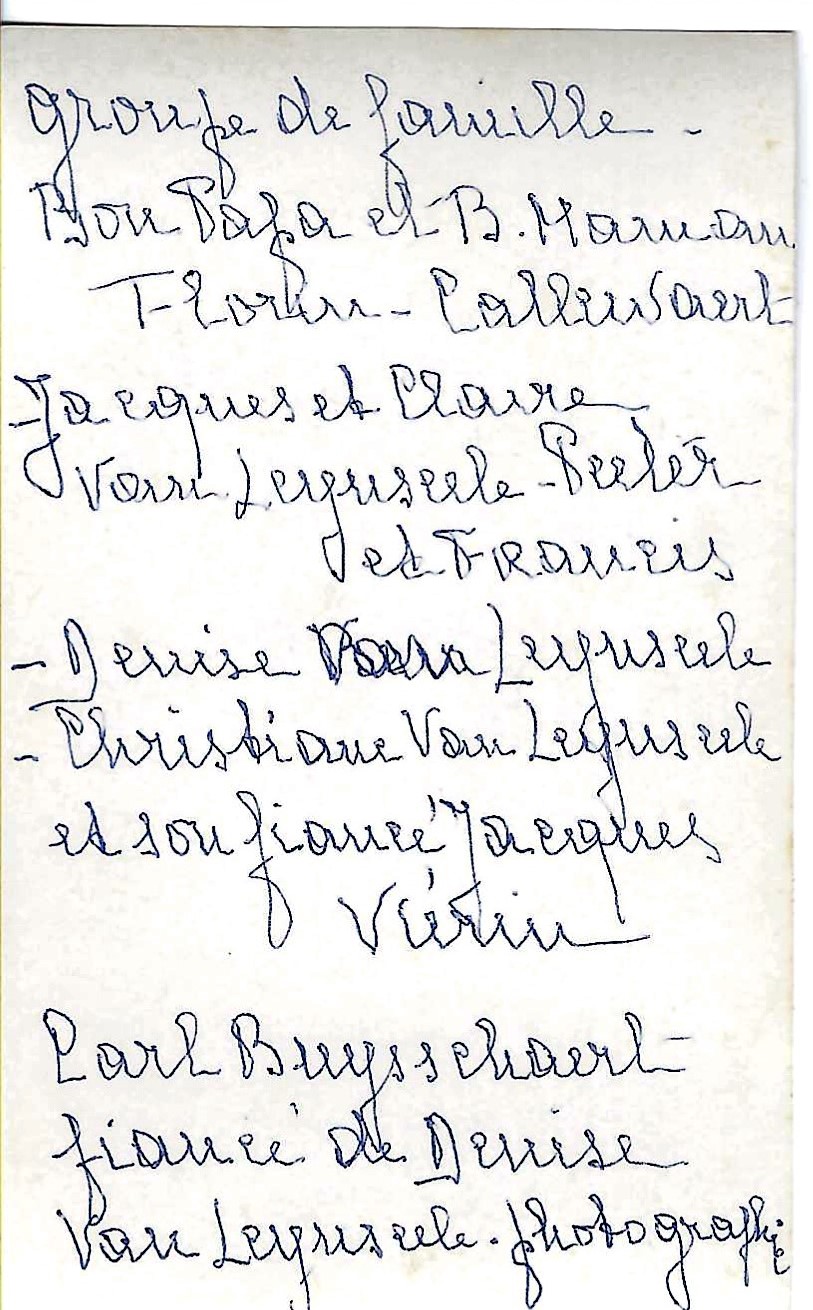 groupe de famille -
Bon Papa et B. Maman
Florin - Callewaert
- Jacques et Claire
Van Leynseele - Peeter
et Francis
- Denise Van Leynseele
- Christiane Van Leynseele
et son fiancé Jacques
Vérin
Carl Buysschaert
fiancé de Denise
Van Leynseele - photographie